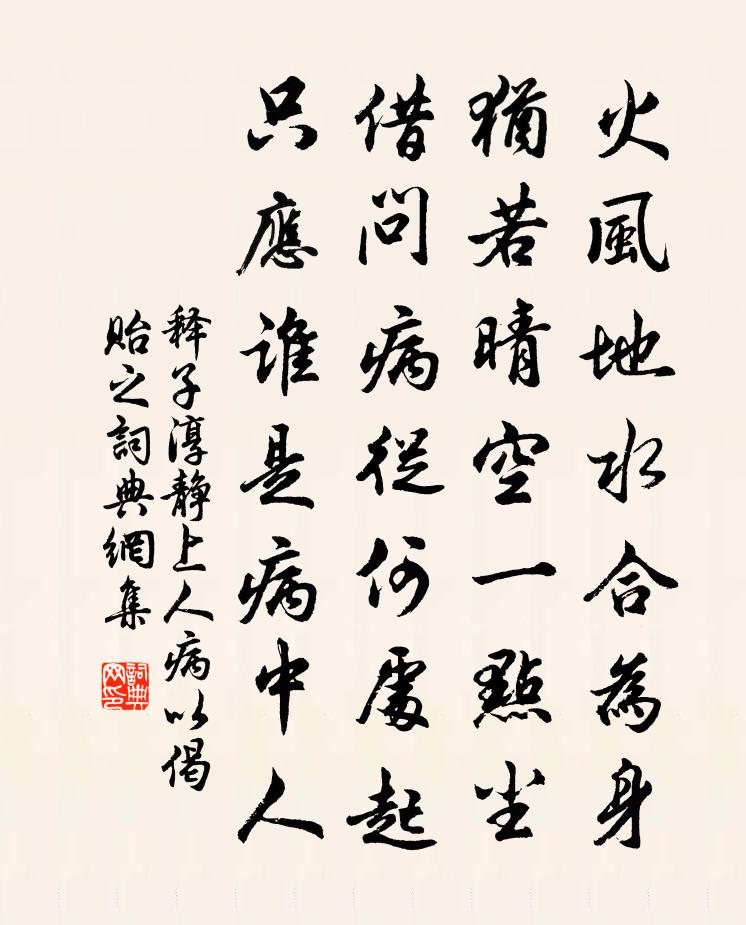 火風地水合為身
猶若晴空一點尘
借問病從何處起
只應誰是病中人
释子淳静上人病以偈
貽之詞典網集
詞典
网印